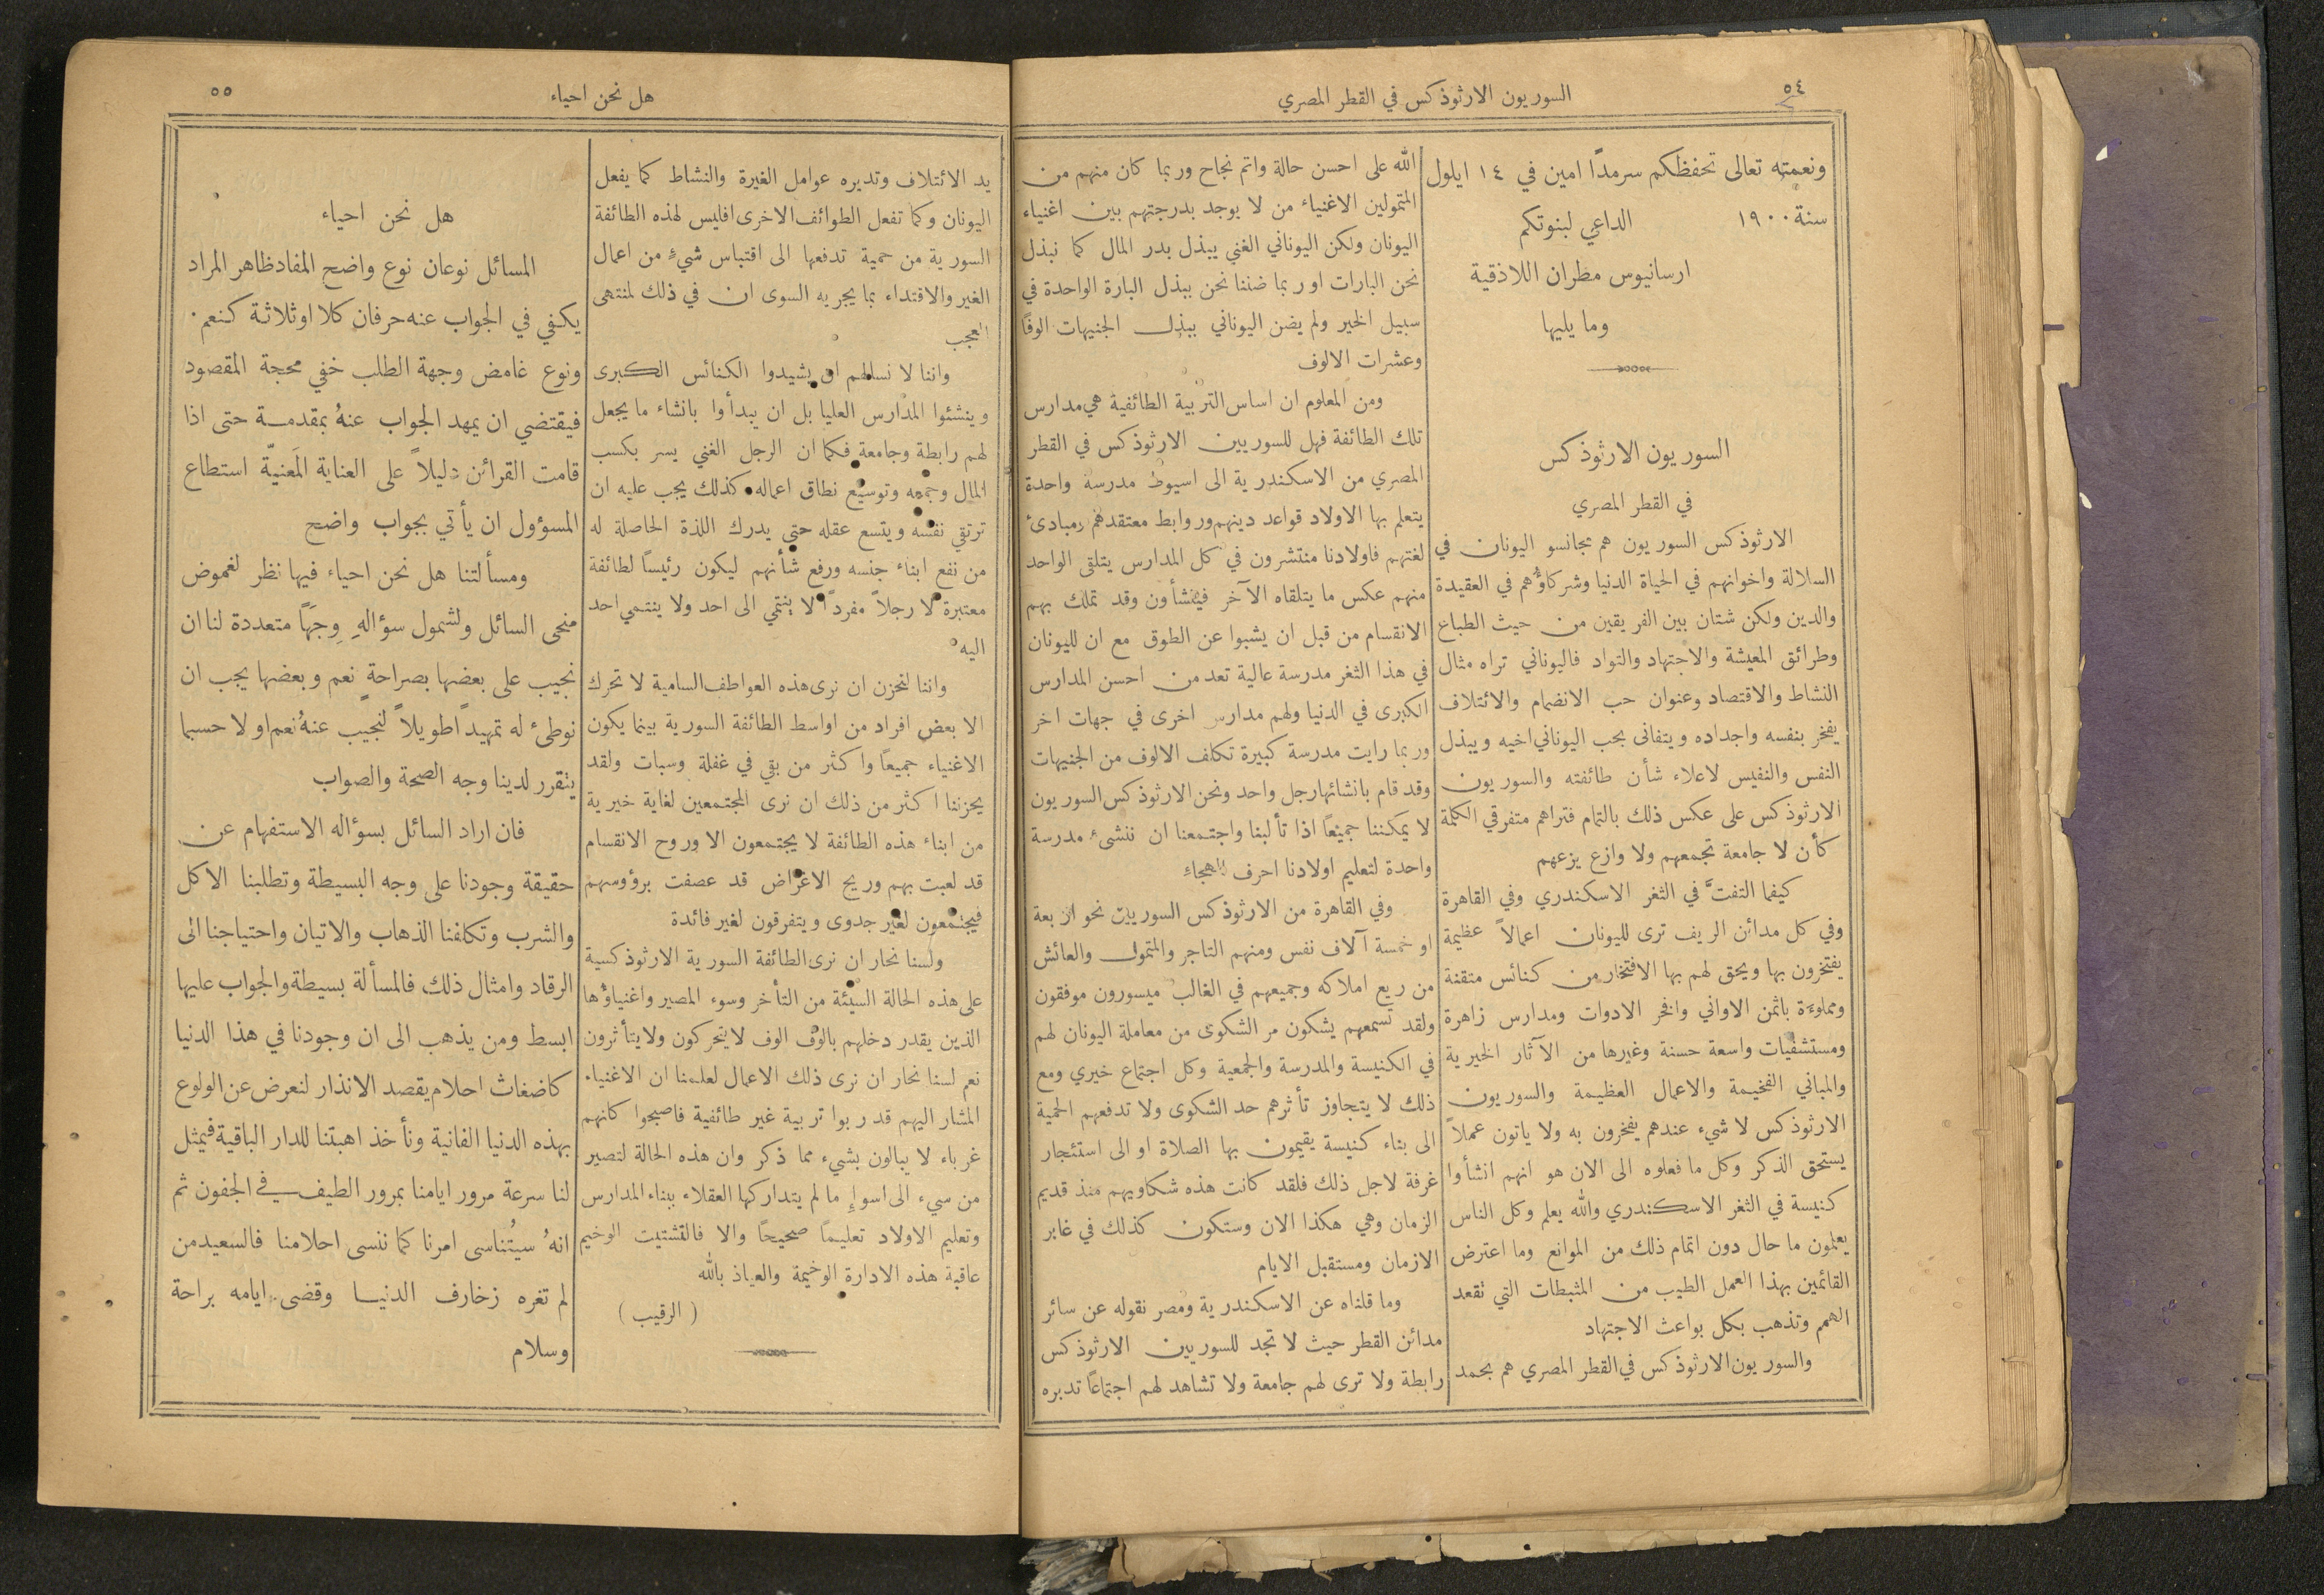 ٥٤
السوريون الارثوذكس في القطر المصري
ونعمته تعالى تحفظكم سرمدًا امين في ١٤ ايلول
سنة ١٩٠٠
الداعي لبنوتكم
ارسانيوس مطران اللاذقية
وما يليها
السوريون الارثوذكس
في القطر المصري
الارثوذكس السوريون هم مجانسو اليونان في
السلالة واخوانهم في الحياة الدنيا وشركاؤهم في العقيدة
والدين ولكن شتان بين الفريقين من حيث الطباع
وطرائق المعيشة والاجتهاد والتواد فاليوناني تراه مثال
النشاط والاقتصاد وعنوان حب الانضمام والائتلاف
يفخر بنفسه واجداده ويتفانى بحب اليوناني اخيه ويبذل
النفس والنفيس لاعلاء شأن طائفته والسوريون
الارثوذكس على عكس ذلك بالتمام فتراهم متفرقي الكلمة
كأن لا جامعة تجمعهم ولا وازع يزعهم
كيفما التفتَّ في الثغر الاسكندري وفي القاهرة
وفي كل مدائن الريف ترى لليونان اعمالاً عظيمة
يفتخرون بها ويحق لهم بها الافتخار من كنائس متقنة
ومملوءة باثمن الاواني وافخر الادوات ومدارس زاهرة
ومستشفيات واسعة حسنة وغيرها من الآثار الخيرية
والمباني الفخيمة والاعمال العظيمة والسوريون
الارثوذكس لا شيء عندهم يفخرون به ولا ياتون عملاً
يستحق الذكر وكل ما فعلوه الى الان هو انهم انشأوا
كنيسة في الثغر الاسكندري والله يعلم وكل الناس
يعلمون ما حال دون اتمام ذلك من الموانع وما اعترض
القائمين بهذا العمل الطيب من المثبطات التي تقعد
الهمم وتذهب بكل بواعث الاجتهاد
والسوريون الارثوذكس في القطر المصري هم بحمد
الله على احسن حالة واتم نجاح وربما كان منهم من
المتمولين الاغنياء من لا يوجد بدرجتهم بين اغنياء
اليونان ولكن اليوناني الغني يبذل بدر المال كما نبذل
نحن البارات او ربما ضننا نحن ببذل البارة الواحدة في
سبيل الخير ولم يضن اليوناني ببذل الجنيهات الوفًا
وعشرات الالوف
ومن المعلوم ان اساس التربية الطائفية هي مدارس
تلك الطائفة فهل للسوريين الارثوذكس في القطر
المصري من الاسكندرية الى اسيوط مدرسة واحدة
يتعلم بها الاولاد قواعد دينهم وروابط معتقدهم ومبادئ
لغتهم فاولادنا منتشرون في كل المدارس يتلقى الواحد
منهم عكس ما يتلقاه الآخر فينشأون وقد تملك بهم
الانقسام من قبل ان يشبوا عن الطوق مع ان لليونان
في هذا الثغر مدرسة عالية تعد من احسن المدارس
الكبرى في الدنيا ولهم مدارس اخرى في جهات اخر
وربما رايت مدرسة كبيرة تكلف الالوف من الجنيهات
وقد قام بانشائها رجل واحد ونحن الارثوذكس السوريون
لا يمكننا جميعًا اذا تألبنا واجتمعنا ان ننشئ مدرسة
واحدة لتعليم اولادنا احرف الهجاء
وفي القاهرة من الارثوذكس السوريين نحو اربعة
او خمسة آلاف نفس ومنهم التاجر والمتمول والعائش
من ريع املاكه وجميعهم في الغالب ميسورون موفقون
ولقد تسمعهم يشكون مر الشكوى من معاملة اليونان لهم
في الكنيسة والمدرسة والجمعية وكل اجتماع خيري ومع
ذلك لا يتجاوز تأثرهم حد الشكوى ولا تدفعهم الحمية
الى بناء كنيسة يقيمون بها الصلاة او الى استئجار
غرفة لاجل ذلك فلقد كانت هذه شكاويهم منذ قديم
الزمان وهي هكذا الان وستكون كذلك في غابر
الازمان ومستقبل الايام
وما قلناه عن الاسكندرية ومصر نقوله عن سائر
مدائن القطر حيث لا تجد للسوريين الارثوذكس
رابطة ولا ترى لهم جامعة ولا تشاهد لهم اجتماعًا تدبره
هل نحن احياء
٥٥
يد الائتلاف وتديره عوامل الغيرة والنشاط كما يفعل
اليونان وكما تفعل الطوائف الاخرى افليس لهذه الطائفة
السورية من حمية تدفعها الى اقتباس شيءٍ من اعمال
الغير والاقتداء بما يجريه السوى ان في ذلك لمنتهى
العجب
واننا لا نسالهم ان يشيدوا الكنائس الكبرى
وينشئوا المدارس العليا بل ان يبدأوا بانشاء ما يجعل
لهم رابطة وجامعة فكما ان الرجل الغني يسر بكسب
المال وجمعه وتوسيع نطاق اعماله كذلك يجب عليه ان
ترتقي نفسه ويتسع عقله حتى يدرك اللذة الحاصلة له
من نفع ابناء جنسه ورفع شأنهم ليكون رئيسًا لطائفة
معتبرة لا رجلاً مفردًا لا ينتمي الى احد ولا ينتمي احد
اليه
واننا لنحزن ان نرى هذه العواطف السامية لا تحرك
الا بعض افراد من اواسط الطائفة السورية بينما يكون
الاغنياء جميعًا واكثر من بقي في غفلة وسبات ولقد
يحزننا اكثر من ذلك ان نرى المجتمعين لغاية خيرية
من ابناء هذه الطائفة لا يجتمعون الا وروح الانقسام
قد لعبت بهم وريح الاغراض قد عصفت برؤوسهم
فيجتمعون لغير جدوى ويتفرقون لغير فائدة
ولسنا نحار ان نرى الطائفة السورية الارثوذكسية
على هذه الحالة السيئة من التأخر وسوء المصير واغنياؤها
الذين يقدر دخلهم بالوف الوف لا يتحركون ولا يتأثرون
نعم لسنا نحار ان نرى ذلك الاعمال لعلمنا ان الاغنياء
المشار اليهم قد ربوا تربية غير طائفية فاصبحوا كانهم
غرباء لا يبالون بشيء مما ذكر وان هذه الحالة لتصير
من سيء الى اسوإ ما لم يتداركها العقلاء ببناء المدارس
وتعليم الاولاد تعليمًا صحيحًا والا فالتشتيت الوخيم
عاقبة هذه الادارة الوخيمة والعياذ بالله
(الرقيب)
هل نحن احياء
المسائل نوعان نوع واضح المفاد ظاهر المراد
يكفي في الجواب عنه حرفان كلا او ثلاثة كنعم.
ونوع غامض وجهة الطلب خفي محجة المقصود
فيقتضي ان يمهد الجواب عنهُ بمقدمة حتى اذا
قامت القرائن دليلاً على العناية المَعنيّة استطاع
المسؤول ان يأتي بجواب واضح
ومسألتنا هل نحن احياء فيها نظر لغموض
منحى السائل ولشمول سؤالهِ وِجَهًا متعددة لنا ان
نجيب على بعضها بصراحةٍ نعم وبعضها يجب ان
نوطئ له تمهيدًا طويلاً لنجيب عنهُ نعم او لا حسبما
يتقرر لدينا وجه الصحة والصواب
فان اراد السائل بسؤاله الاستفهام عن
حقيقة وجودنا على وجه البسيطة وتطلبنا الاكل
والشرب وتكلفنا الذهاب والاتيان واحتياجنا الى
الرقاد وامثال ذلك فالمسألة بسيطة والجواب عليها
ابسط ومن يذهب الى ان وجودنا في هذا الدنيا
كاضغاث احلام يقصد الانذار لنعرض عن الولوع
بهذه الدنيا الفانية ونأخذ اهبتنا للدار الباقية فيمثل
لنا سرعة مرور ايامنا بمرور الطيف في الجفون ثم
انهُ سيُتناسى امرنا كما ننسى احلامنا فالسعيد من
لم تغره زخارف الدنيا وقضى ايامه براحة
وسلام